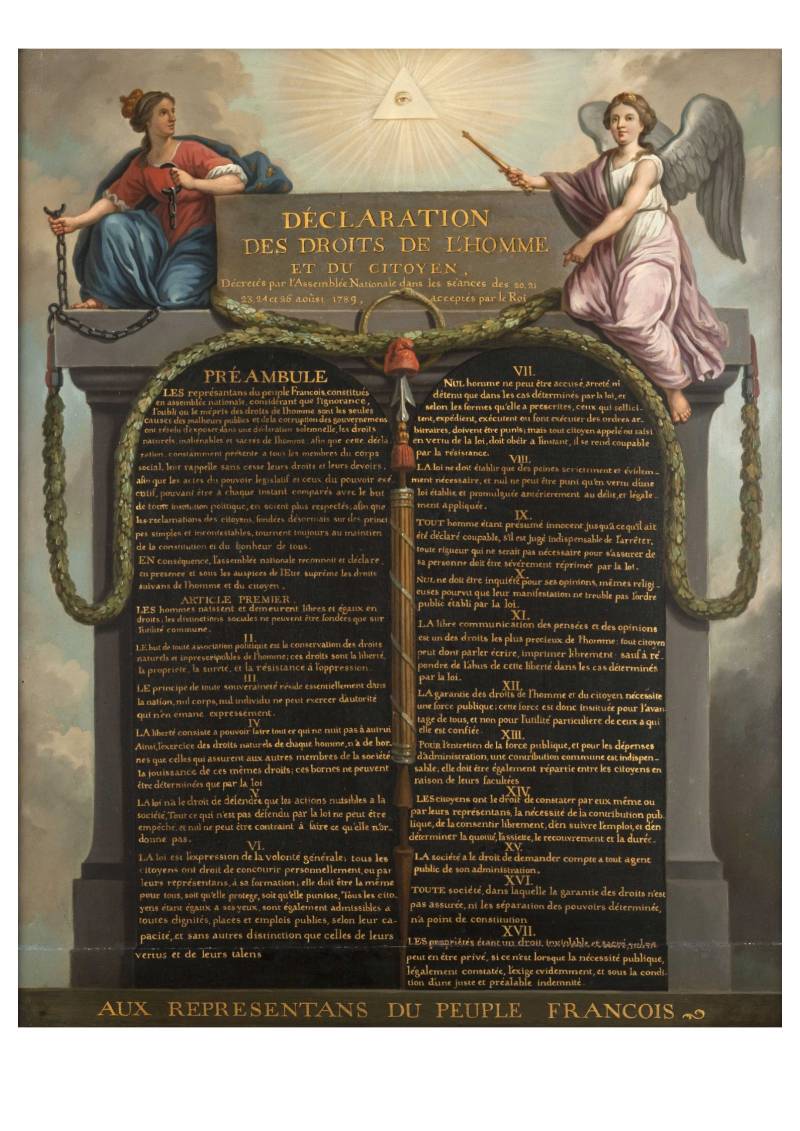 DÉCLARATION
DES DROITS DE L'HOMME
ET DU CITOYEN,
Décretés par l'Assemblée Nationale dans les séances des 20, 21
23, 24 et 26 aoûst 1789, acceptés par le Roi
PRÉAMBULE
LES représantans du peuple Francois, constitués
en assemblée nationale, considérant que l'ignorance,
l'oubli ou le mépris des droits de l'homme sont les seules
causes des malheurs publics et de la corruption des gouvernemens
ont résolu d'exposer dans une déclaration solemnelle, les droits
naturels, inaliénables et sacrés de l'homme, afin que cette décla
ration, constamment présente a tous les membres du corps
social, leur rappelle sans cesse leurs droits et leurs devoirs,
afin que les actes du pouvoir législatif et ceux du pouvoir exé
cutif, pouvant être à chaque instant comparés avec le but
de toute institution politique, en soient plus respectés; afin que
les reclamations des citoyens, fondées désormais sur des princi
pes simples et incontestables, tournent toujours au maintien
de la constitution et du bonheur de tous.
EN conséquence, l'assemblée nationale reconnoit et déclare,
en presence et sous les auspices de l'Etre suprême les droits
suivans de l'homme et du citoyen.
ARTICLE PREMIER.
LES hommes naissent et demeurent libres et égaux en
droits; les distinctions sociales ne peuvent être fondées que sur
l'utilité commune.
II.
LE but de toute association politique est la conservation des droits
naturels et imprescriptibles de l'homme; ces droits sont la liberté,
la propriété, la sureté, et la résistance à l'oppression.
III.
LE principe de toute souveraineté réside essentiellement dans
la nation, nul corps, nul individu ne peut exercer d'autorité
qui n'en émane expressément.
IV.
LA liberté consiste a pouvoir faire tout ce qui ne nuit pas à autrui
Ainsi, l'exercice des droits naturels de chaque homme, n'a de bor-
nes que celles qui assurent aux autres membres de la société
la jouissance de ces mêmes droits; ces bornes ne peuvent
être déterminées que par la loi
V.
LA loi n'a le droit de défendre que les actions nuisibles a la
société. Tout ce qui n'est pas défendu par la loi ne peut être
empêché, et nul ne peut être contraint à faire ce qu'elle n'or-
donne pas.
VI.
LA loi est l'expression de la volonté générale; tous les
citoyens ont droit de concourir personnellement, ou par
leurs représentans, à sa formation; elle doit être la même
pour tous, soit qu'elle protege, soit qu'elle punisse, Tous les cito-
yens étant égaux a ses yeux, sont également admissibles a
toutes dignités, places et emplois publics, selon leur ca-
pacité, et sans autres distinction que celles de leurs
vertus et de leurs talens
VII.
NUL homme ne peut être accusé, arreté ni
détenu que dans les cas déterminés par la loi, et
selon les formes qu'elle a prescrites, ceux qui sollici-
tent, expédient, exécutent ou font exécuter des ordres ar-
bitraires, doivent être punis; mais tout citoyen appelé ou saisi
en vertu de la loi, doit obéir a l'instant, il se rend coupable
par la résistance.
VIII.
LA loi ne doit établir que des peines strictement et évidem-
ment nécessaire, et nul ne peut être puni qu'en vertu d'une
loi établie et promulguée antérierement au délit, et légale-
ment appliquée.
IX.
TOUT homme étant présumé innocent jusqu'a ce qu'il ait
été déclaré coupable, s'il est jugé indispensable de l'arrêter,
toute rigueur qui ne serait pas nécessaire pour s'assurer de
sa personne doit être sévérement réprimée par la loi.
X.
NUL ne doit être inquiété pour ses opinions, mêmes religi-
euses pourvu que leur manifestation ne trouble pas l'ordre
public établi par la loi.
XI.
LA libre communication des pensées et des opinions
est un des droits les plus precieux de l'homme: tout citoyen
peut dont parler écrire, imprimer librement: sauf à ré-
pondre de l'abus de cette liberté dans les cas déterminés
par la loi.
XII.
LA garantie des droits de l'homme et du citoyen nécessite
une force publique; cette force est donc instituée pour l'avan-
tage de tous, et non pour l'utilité particuliere de ceux a qui
elle est confiée.
XIII.
POUR l'entretien de la force publique, et pour les dépenses
d'administration, une contribution commune est indispen-
sable, elle doit être également répartie entre les citoyens en
raison de leurs facultées
XIV.
LES citoyens ont le droit de constater par eux même ou
par leurs représentans, la nécessité de la contribution pub-
lique, de la consentir librement, d'en suivre l'emploi, et d'en
déterminer la quotité, l'assiette, le recouvrement et la durée.
XV.
LA société a le droit de demander compte a tout agent
public de son administration.
XVI.
TOUTE société, dans laquelle la garantie des droits n'est
pas assurée, ni les séparation des pouvoirs déterminée,
n'a point de constitution
XVII.
LES propriétés étant un droit inviolable et sacré, nul ne
peut en être privé, si ce n'est lorsque la nécessité publique,
légalement constatée, l'exige evidemment, et sous la condi-
tion d'une juste et préalable indemnité
AUX REPRESENTANS DU PEUPLE FRANCOIS